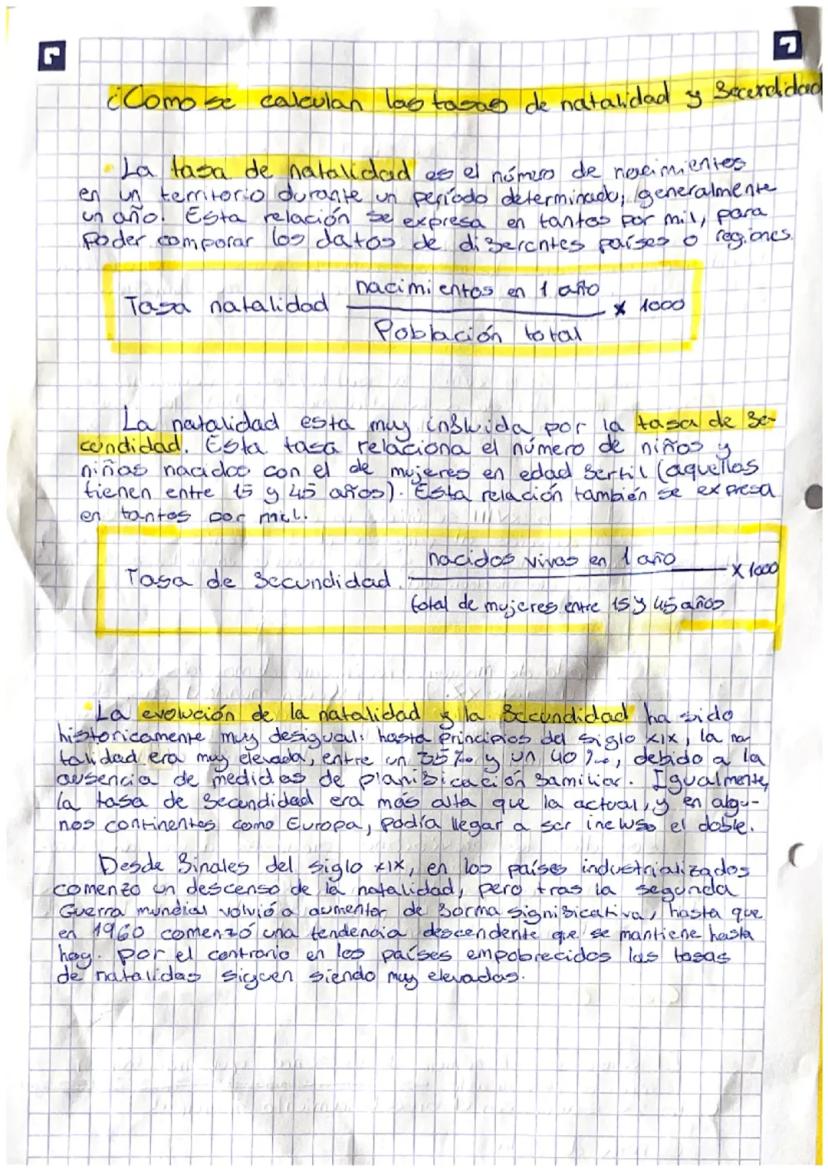 ¿Como se calculan las tasas de natalidad y fecundidad
La tasa de natalidad es el número de nacimientos
en un territorio durante un período determinado, generalmente
un año. Esta relación se expresa en tantos por mil, para
poder comparar los datos de diferentes países o regiones.
Tasa natalidad nacimientos en 1 año x 1000
Población total
La natalidad esta muy influida por la tasa de fe-
cundidad. Esta tasa relaciona el número de niños y
niñas nacidos con el de mujeres en edad fertil (aquellas
tienen entre 15 y 45 años). Esta relación también se expresa
en tantos por mil.
Tasa de fecundidad. nacidos vivos en 1 año x 1000
total de mujeres entre 15 y 45 años
La evolución de la natalidad y la fecundidad ha sido
historicamente muy desigual: hasta principios del siglo XIX, la na
talidad era muy elevada, entre un 35‰ y un 40‰, debido a la
ausencia de medidas de planificación familiar. Igualmente,
la tasa de fecundidad era más alta que la actual, y en algu-
nos continentes como Europa, podía llegar a ser incluso el doble.
Desde finales del siglo XIX, en los países industrializados
comenzo un descenso de la natalidad, pero tras la segunda
Guerra mundial volvió a aumentar de forma significativa, hasta que
en 1960 comenzó una tendencia descendente que se mantiene hasta
hoy. Por el contrario en los países empobrecidos las tasas
de natalidas siguen siendo muy elevadas.